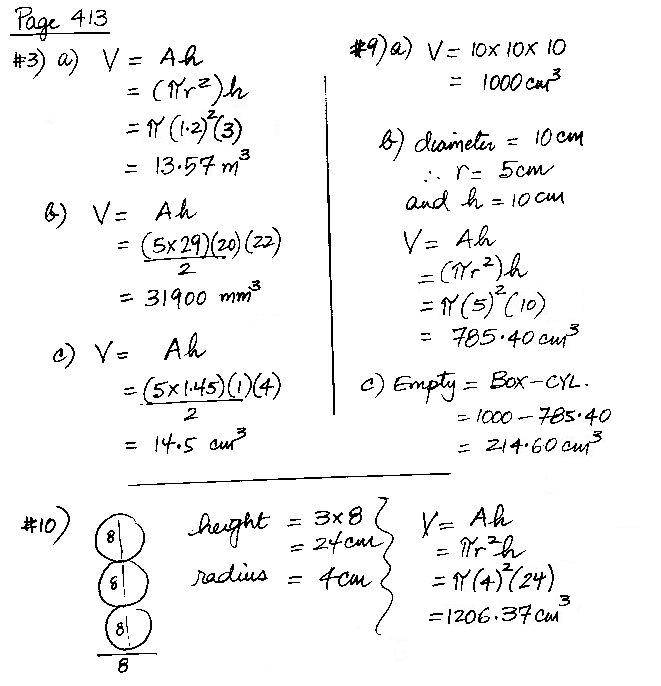 Page 413
#3) a) V = Ah
= (πr²)h
= π(1.2)²(3)
= 13.57 m³
b) V = Ah
= (5×29)(20)(22)
2
= 31900 mm³
c) V = Ah
= (5×1.45)(1)(4)
2
= 14.5 cm³
#9) a) V = 10×10×10
= 1000 cm³
b) diameter = 10 cm
∴ r = 5cm
and h = 10 cm
V = Ah
= (πr²)h
= π(5)²(10)
= 785.40 cm³
c) Empty = BOX-CYL.
= 1000 - 785.40
= 214.60 cm³
#10)
8
8
8
8
height = 3×8
= 24 cm
radius = 4cm
V = Ah
= πr²h
= π(4)²(24)
= 1206.37 cm³